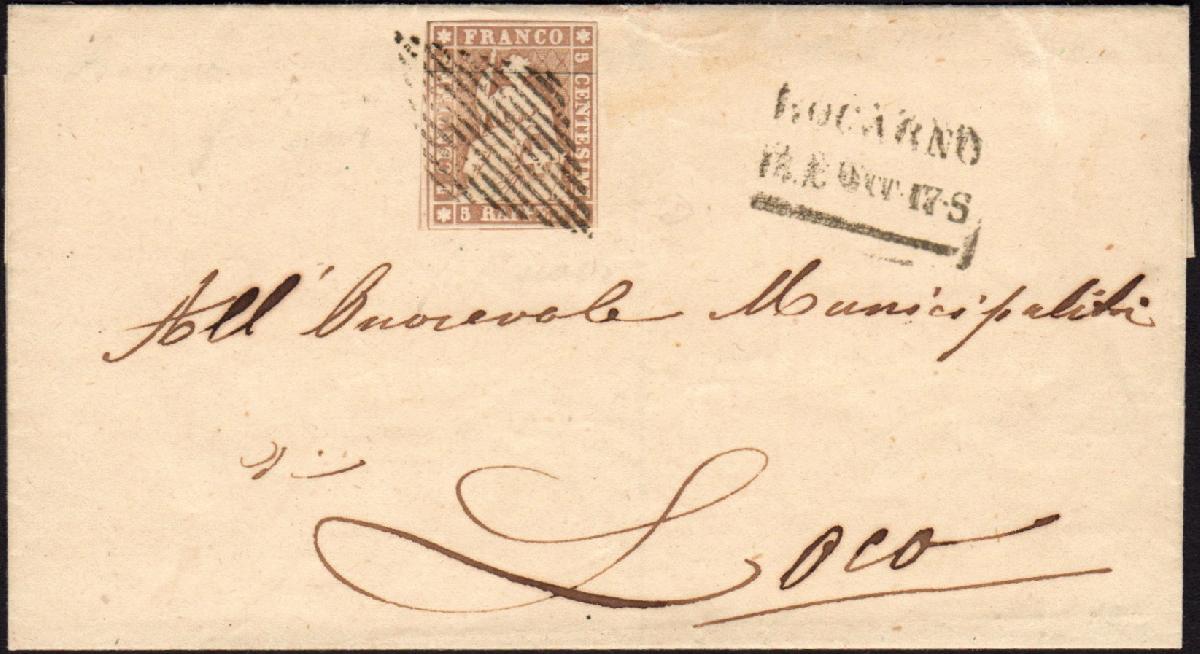 FRANCO
5 CENTESI
5 RAP
LOCARNO
17-S
All' Onorevole Municipalità
di
Loco